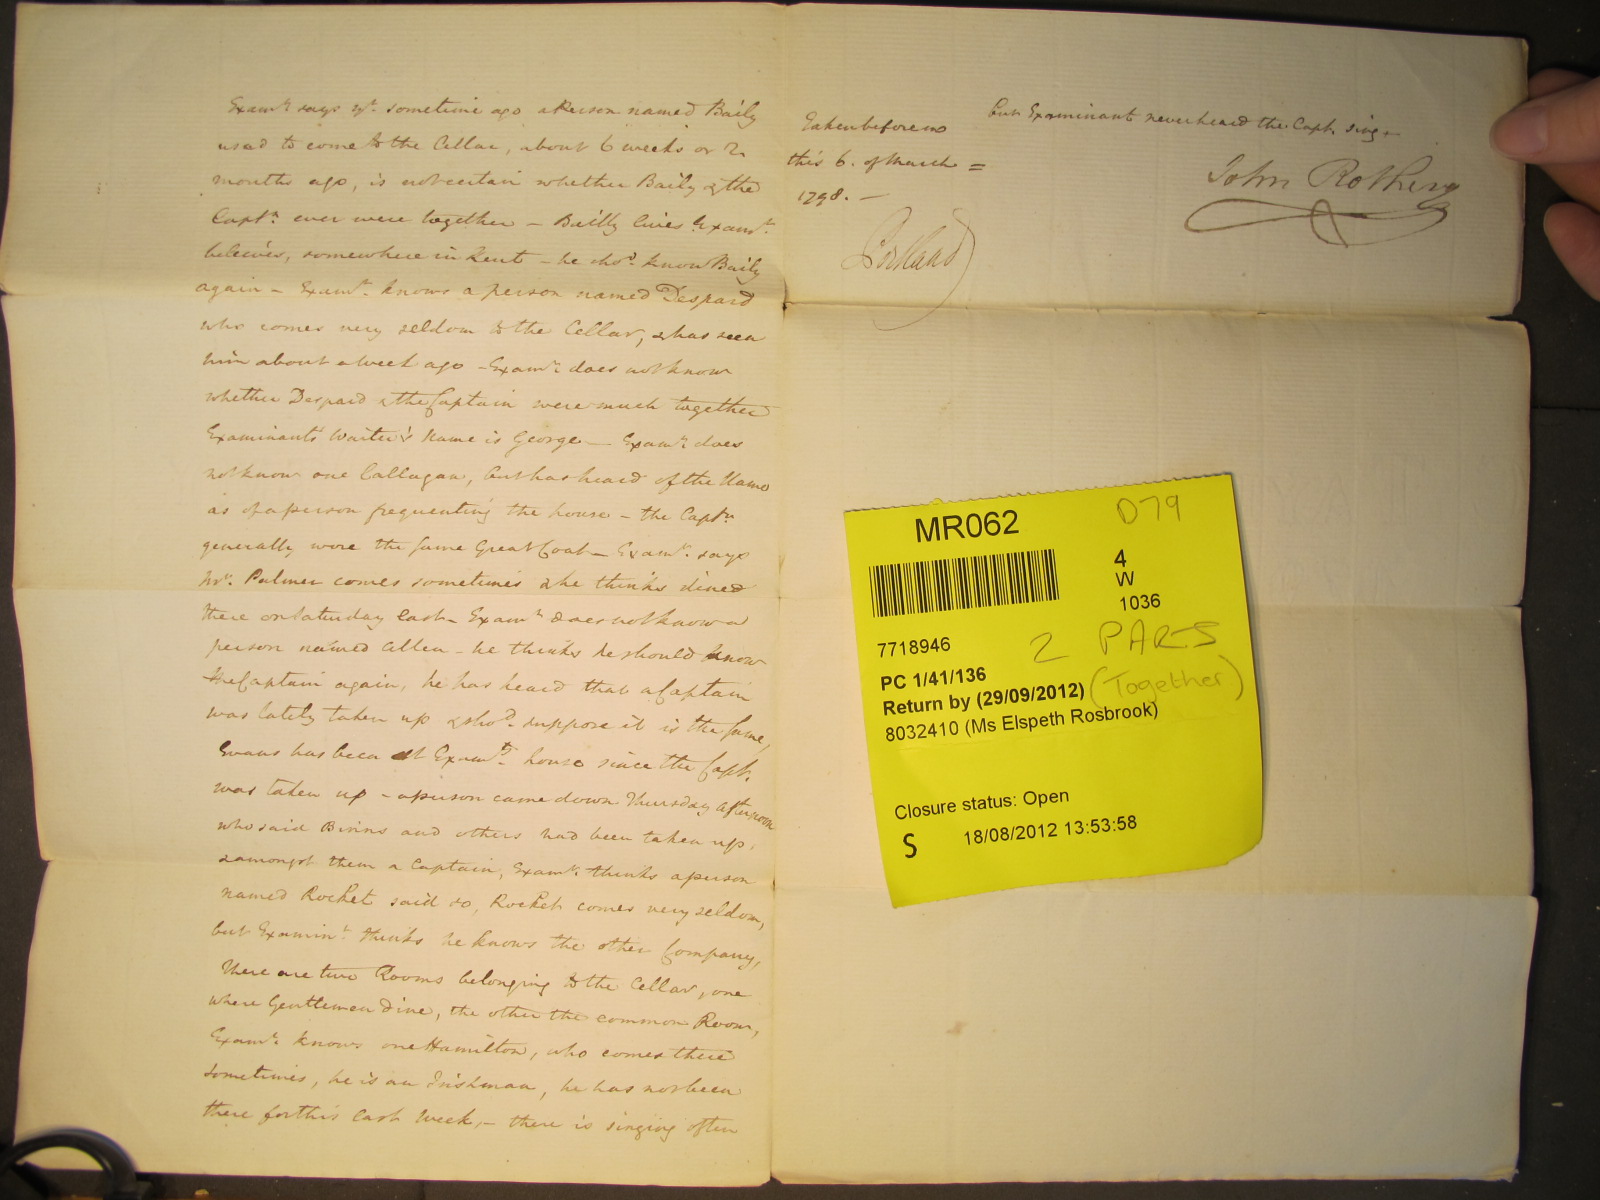 Examt. says yt. sometime ago a Person named Baily
used to come to the Cellar, about 6 weeks or 2
months ago, is not certain whether Baily & the
Captn. ever were together – Bailly lives Examt.
beleives, somewhere in Kent – he shod. know Baily
again – Examt. knows a person named Despard
who comes very seldom to the Cellar, & has seen
him about a week ago – Examt. does not know
whether Despard & the Captain were much together
Examinants Waiter's Name is George – Examt. does
not know one Callagan, but has heard of the Name
as of a person frequenting the house – the Captn.
generally wore the same Great Coat – Examt. says
Mr. Palmer comes sometimes & he thinks dined
there on Saturday last – Examt. does not know a
person named Allen – he thinks he should know
the Captain again, he has heard that a Captain
was lately taken up & shod. suppose it is the same,
Evans has been at Examts. house since the Capt.
was taken up – a person came down Thursday afternoon
who said Binns and others had been taken up,
& amongst them a Captain, Examt. thinks a person
named Rocket said so, Rocket comes very seldom,
but Examint. thinks he knows the other Company,
There are two Rooms belonging to the Cellar, one
where Gentlemen dine, the other the common Room,
Examt. knows one Hamilton, who comes there
sometimes, he is an Irishman, he has not been
there for this last Week, – there is singing often
but Examinant never heard the Capt. sing –
John Rothery
Taken before me
this 6. of March =
1798. –
Portland
MR062
D79
4
W
1036
7718946
2 PARTS
PC 1/41/136
(Together)
Return by (29/09/2012)
8032410 (Ms Elspeth Rosbrook)
Closure status: Open
S 18/08/2012 13:53:58